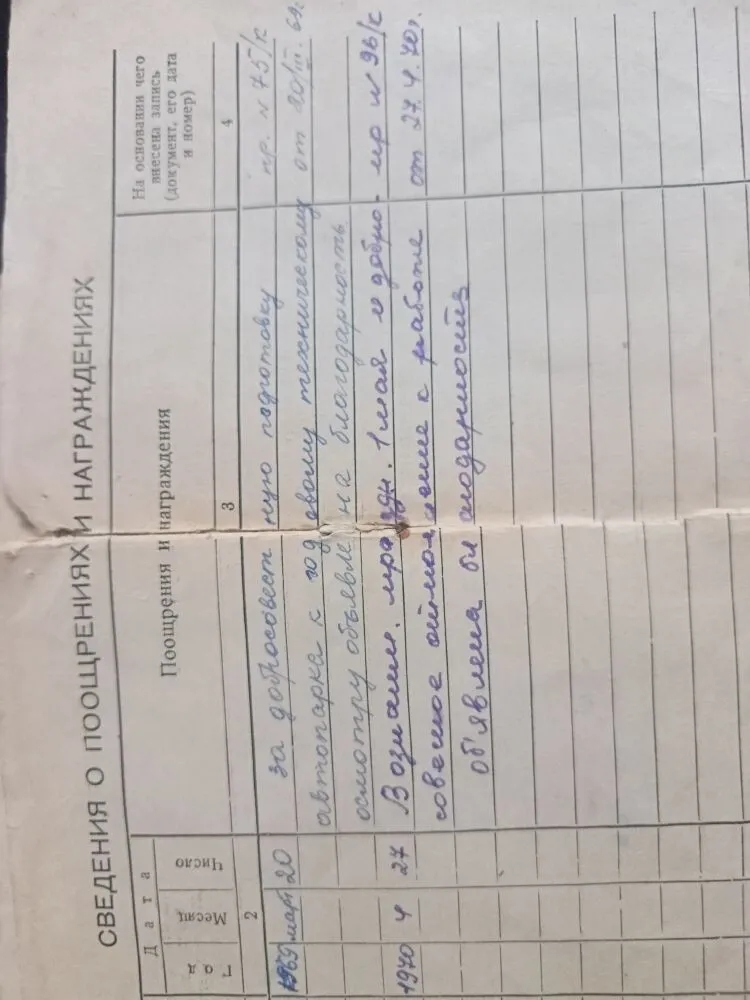 СВЕДЕНИЯ О ПООЩРЕНИЯХ И НАГРАЖДЕНИЯХ
Дата
Год Месяц Число
Поощрения и награждения
На основании чего
внесена запись
(документ, его дата
и номер)
2 3 4
1969 март 20 за добросовестную подготовку пр. N 75/к
автопарка к годовому техническому от 20/III.69г.
осмотру объявлена благодарность
1970 4 27 В ознамен. праздн. 1 мая и добро- пр N 96/к
совестное отношение к работе от 27.4.70г.
об'явлена благодарность